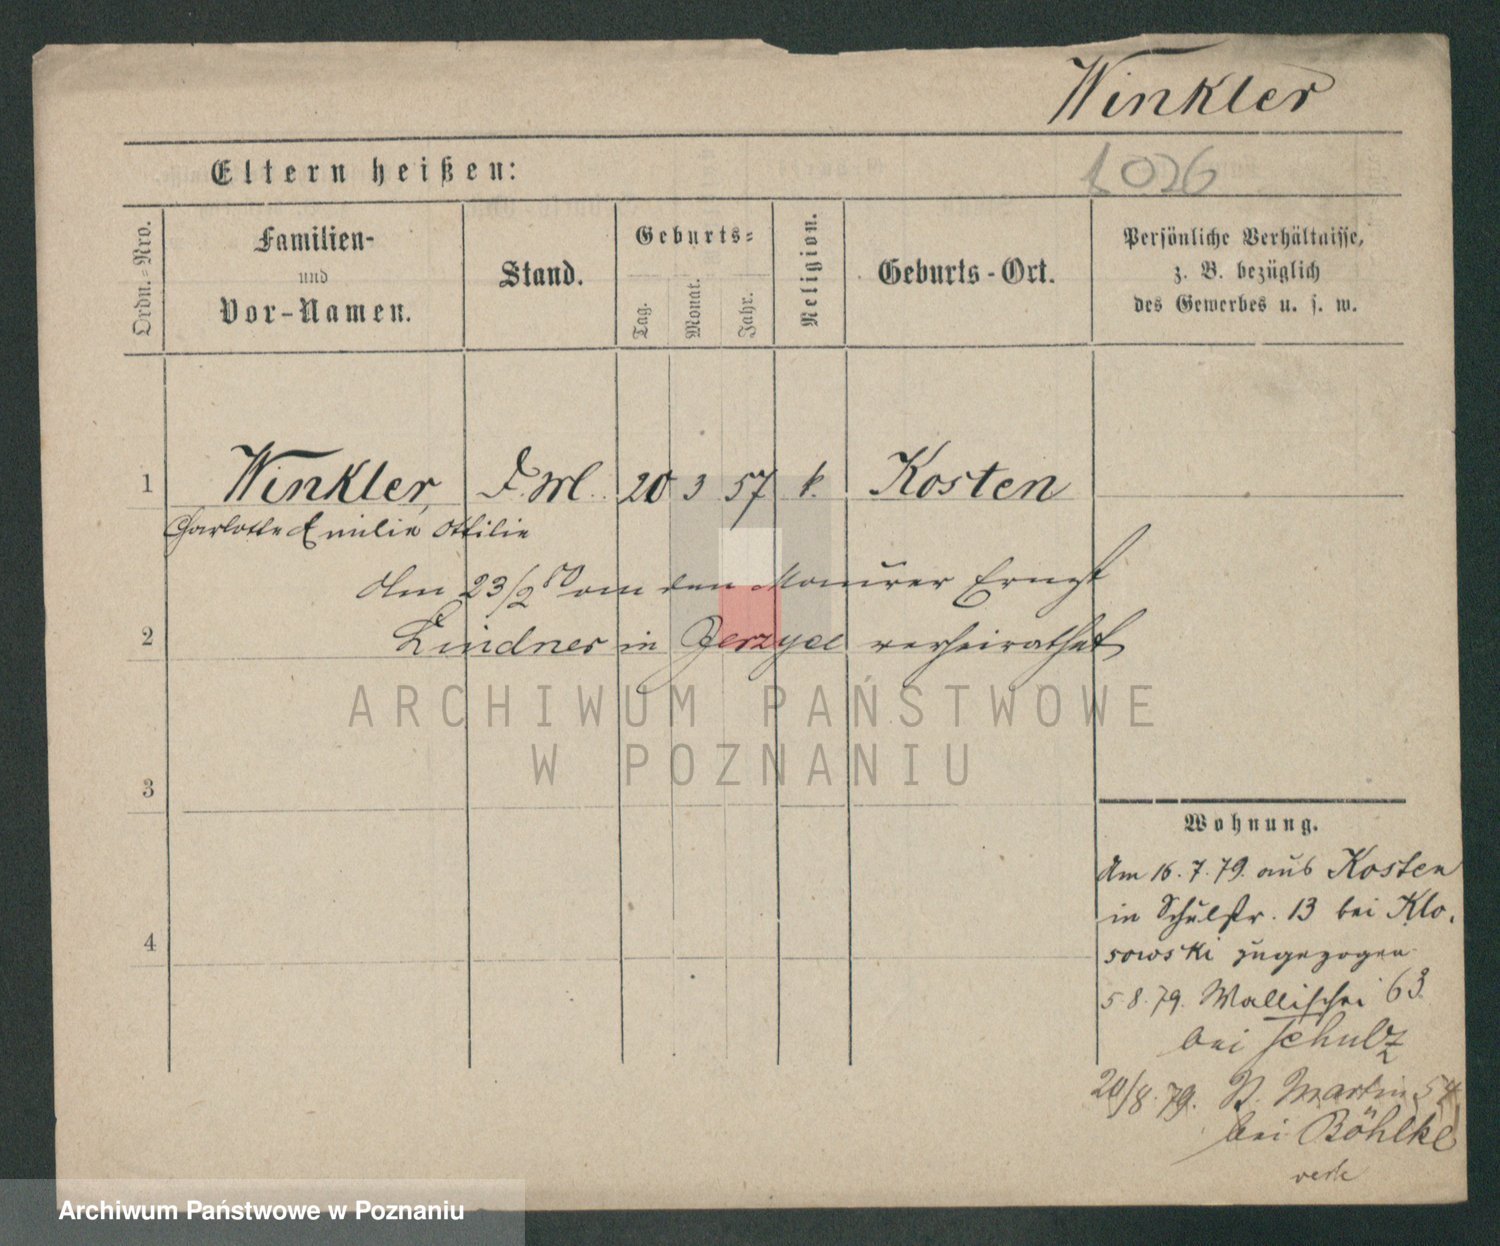 Winkler
Eltern heißen:
1026
Ordn.-Nro.
Familien-
und
Vor-Namen.
Stand.
Geburts-
Tag.
Monat.
Jahr.
Religion.
Geburts-Ort.
Persönliche Verhältnisse,
z. B. bezüglich
des Gewerbes u. s. w.
1 Winkler, D. Ml. 20 3 57 k. Kosten
Charlotte Emilie Ottilie
Am 23/2 80 an den Maurer Ernst
2 Lindner in Jerzyce verheirathet
ARCHIWUM PAŃSTWOWE
W POZNANIU
3
4
Wohnung.
Am 16.7.79. aus Kosten
in Schulstr. 13 bei Klo-
sowski zugezogen
5 8. 79. Wallischei 63
bei Schulz
20/8. 79. St. Martin 54
bei Böhlke
Archiwum Państwowe w Poznaniu